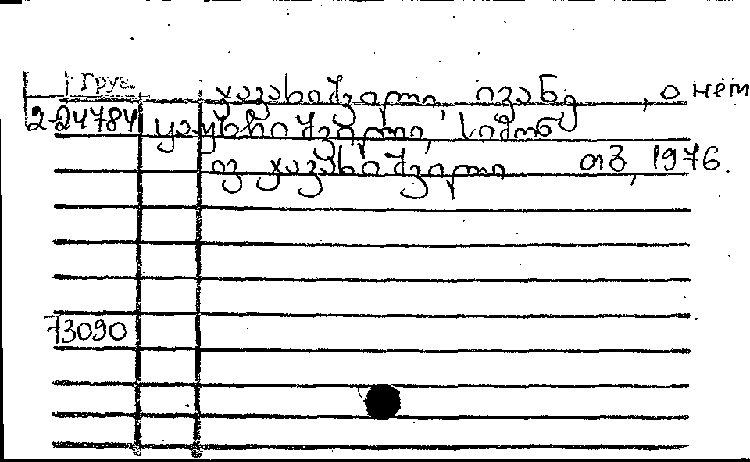 Груз.
ჯავახიშვილი, ივანე, о нем
2-24784 ყაუხჩიშვილი, სიმონ
ივ. ჯავახიშვილი თბ, 1976.
73090